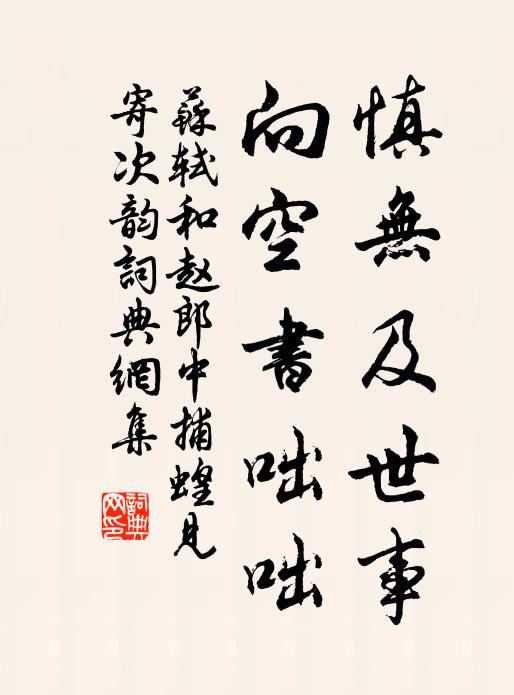 慎無及世事
向空書咄咄
蘇軾和赵郎中捕蝗見
寄次韵詞典網集
詞典
网印